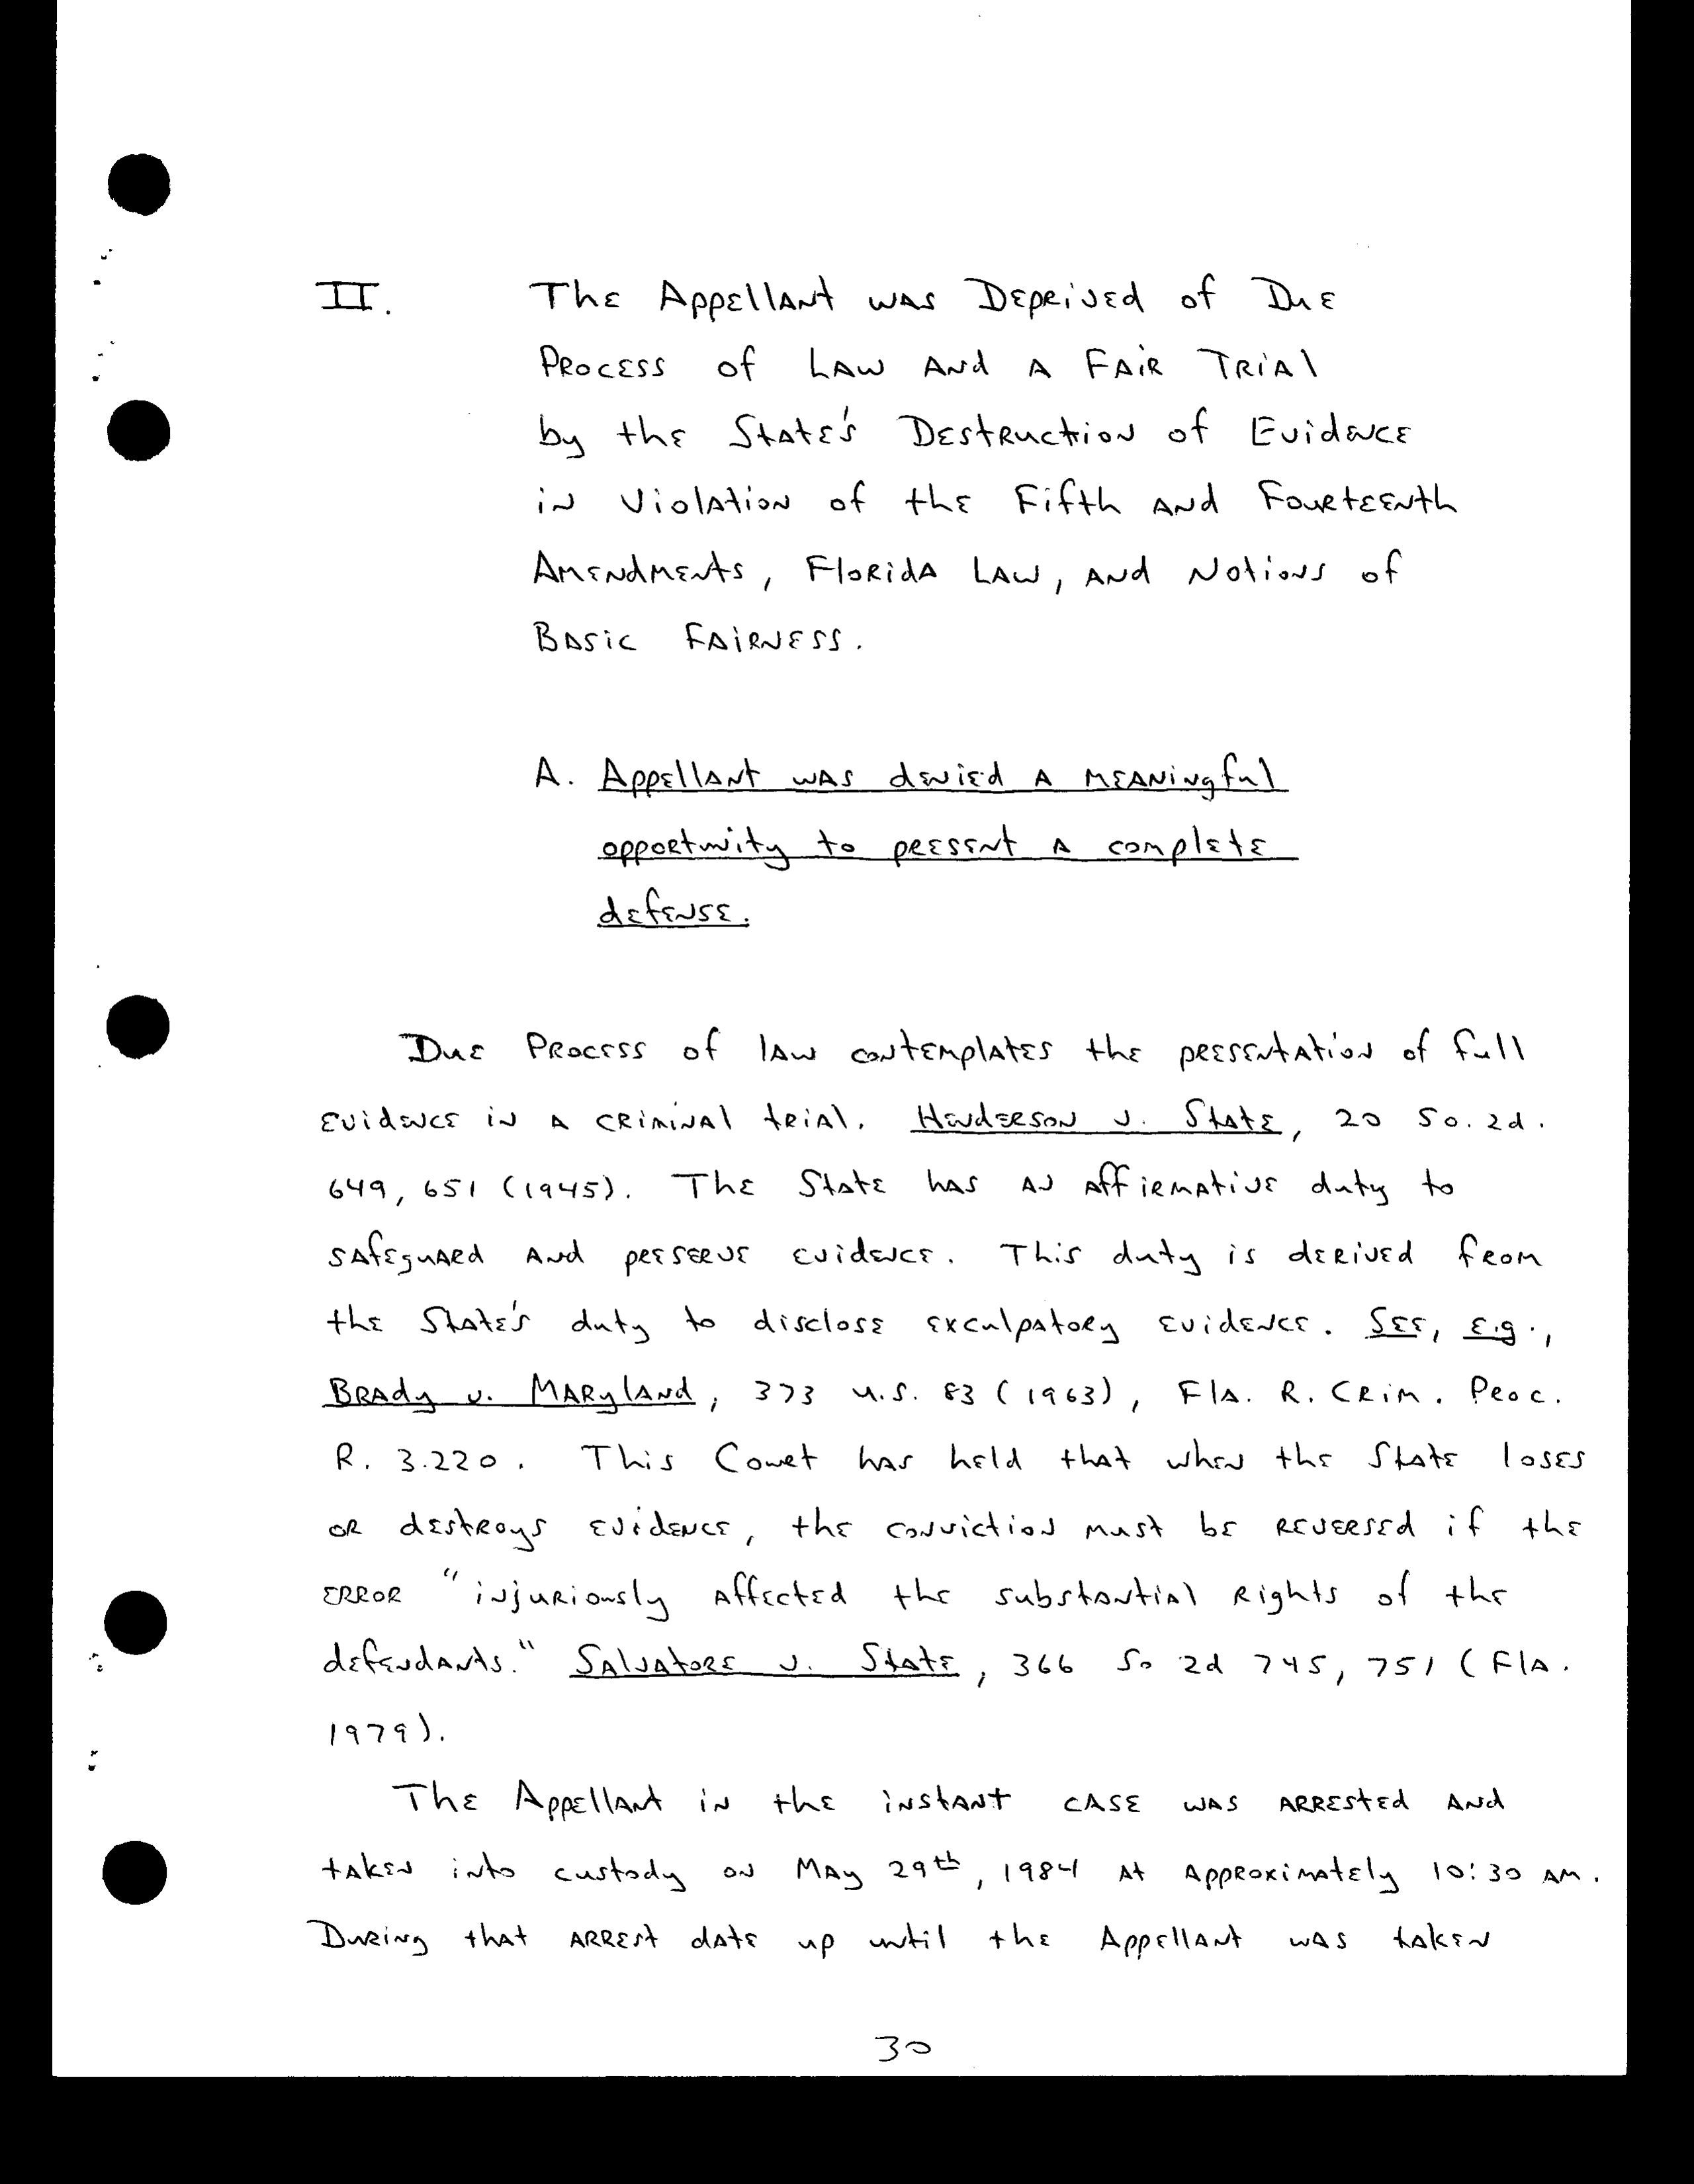 II. The Appellant was Deprived of Due
Process of Law And A Fair Trial
by the State's Destruction of Evidence
in Violation of the Fifth and Fourteenth
Amendments, Florida Law, and Notions of
Basic Fairness.
A. Appellant was denied a meaningful
opportunity to present a complete
defense.
Due Process of law contemplates the presentation of full
evidence in a criminal trial. Henderson v. State, 20 So. 2d.
649, 651 (1945). The State has an affirmative duty to
safeguard and preserve evidence. This duty is derived from
the State's duty to disclose exculpatory evidence. See, e.g.,
Brady v. Maryland, 373 U.S. 83 (1963), Fla. R. Crim. Proc.
R. 3.220. This Court has held that when the State loses
or destroys evidence, the conviction must be reversed if the
error "injuriously affected the substantial rights of the
defendants." Salvatore v. State, 366 So 2d 745, 751 (Fla.
1979).
The Appellant in the instant case was arrested and
taken into custody on May 29th, 1984 at approximately 10:30 am.
During that arrest date up until the Appellant was taken
30